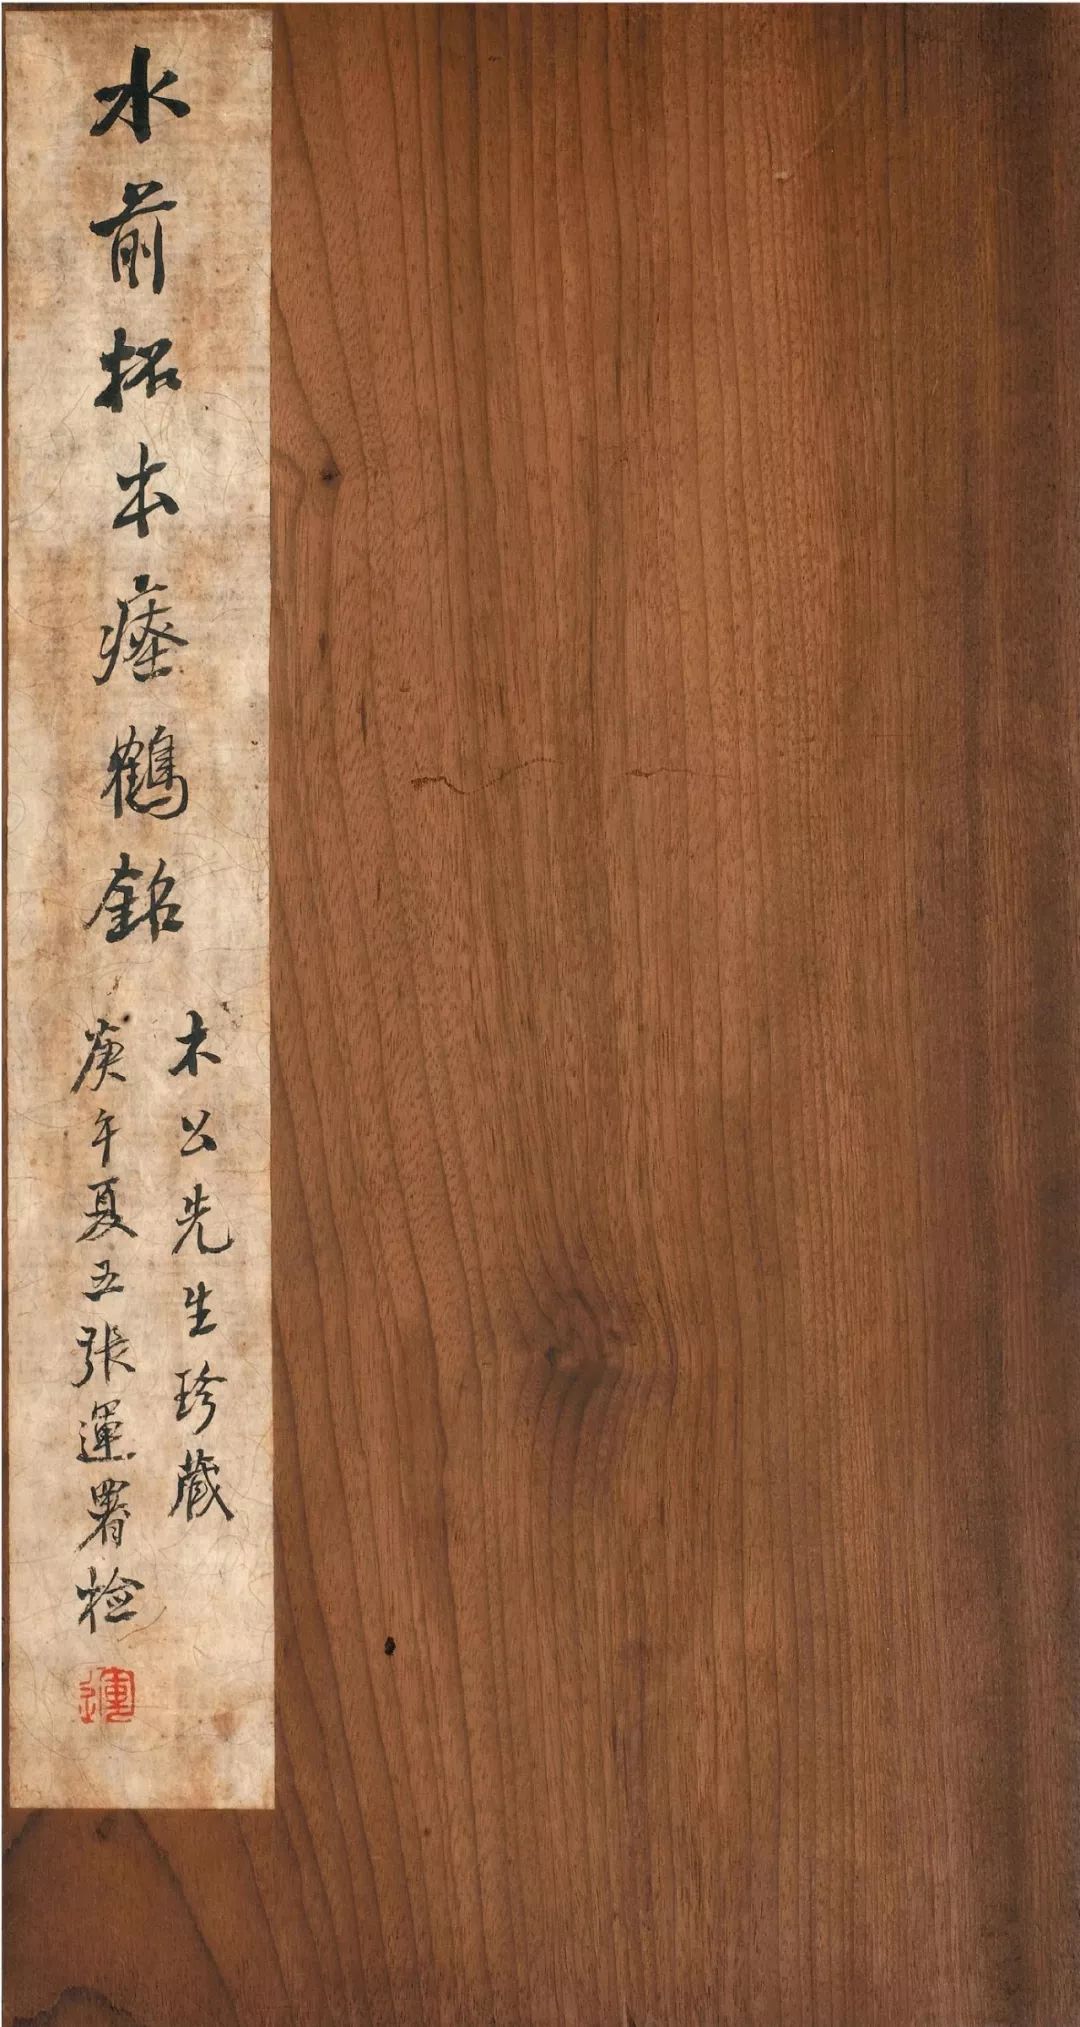 水前拓本瘞鶴銘
木公先生珍藏
庚午夏五張運署檢
運